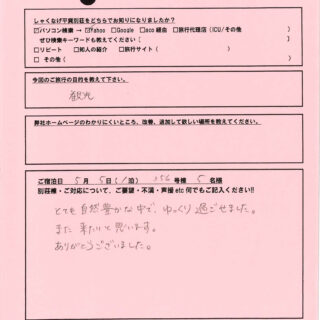 しゃくなげ平貸別荘をどちらでお知りになりましたか？
☑パソコン検索 → ☑Yahoo □Google □aco総合 □旅行代理店（ICU/その他　　）
ぜひ検索キーワードも教えてください（　　）
□リピート □知人の紹介 □旅行サイト（　　）
□その他（　　）
今回のご旅行の目的を教えて下さい。
観光
弊社ホームページのわかりにくいところ、改善、追加して欲しい場所を教えてください。
ご宿泊日 5月5日（1泊） 256号棟 5名様
別荘棟・ご対応について、ご要望・不満・声援etc何でもご記入ください!!
とても自然豊かな中で、ゆっくり過ごせました。
また来たいと思います。
ありがとうございました。